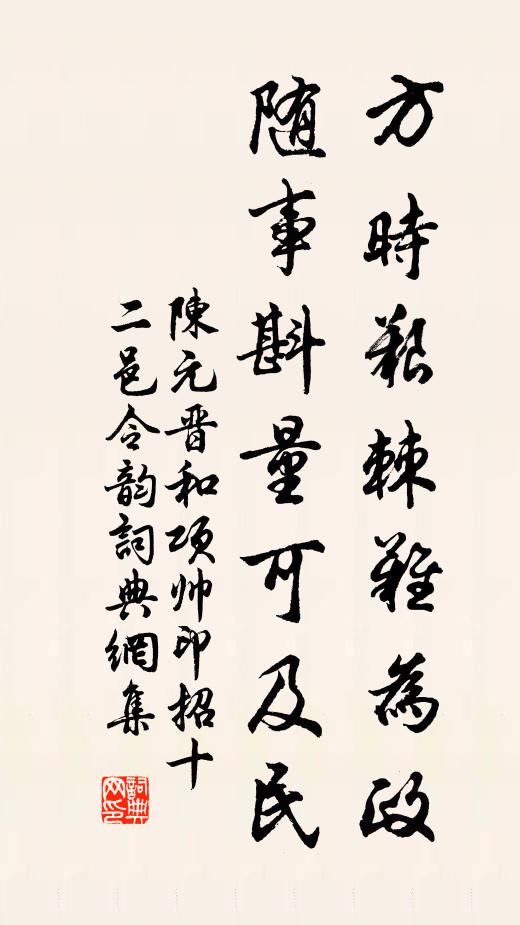 方時艱棘難為政
随事斟量可及民
陳元晋和项帅印招十
二邑令韵詞典網集
詞典網印